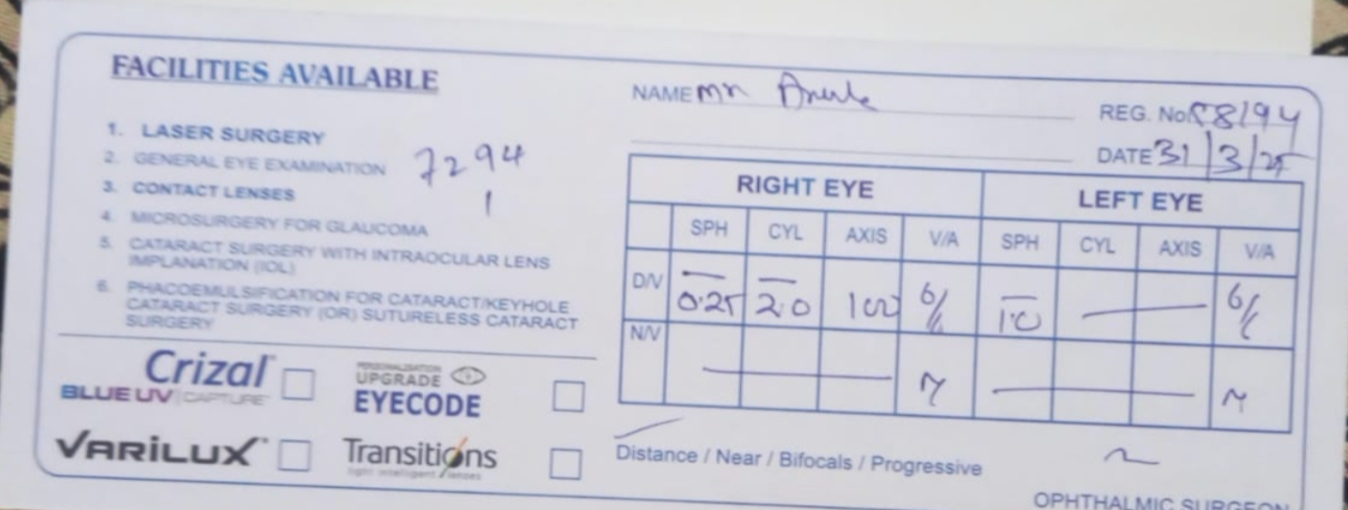 FACILITIES AVAILABLE
1. LASER SURGERY
2. GENERAL EYE EXAMINATION
3. CONTACT LENSES
4. MICROSURGERY FOR GLAUCOMA
5. CATARACT SURGERY WITH INTRAOCULAR LENS
IMPLANATION (IOL)
6. PHACOEMULSIFICATION FOR CATARACT/KEYHOLE
CATARACT SURGERY (OR) SUTURELESS CATARACT
SURGERY
7294
1
Crizal
BLUE UV CAPTURE
PERSONALISATION
UPGRADE
EYECODE
VARILUX
Transitions
light intelligent lenses
NAME Mr
REG. No 58194
DATE 31/3/25
RIGHT EYE LEFT EYE
SPH CYL AXIS V/A SPH CYL AXIS V/A
D/V – 0.25 – 2.0 100 6/6 – 1.0 — 6/6
N/V — —
Distance / Near / Bifocals / Progressive
OPHTHALMIC SURGEON